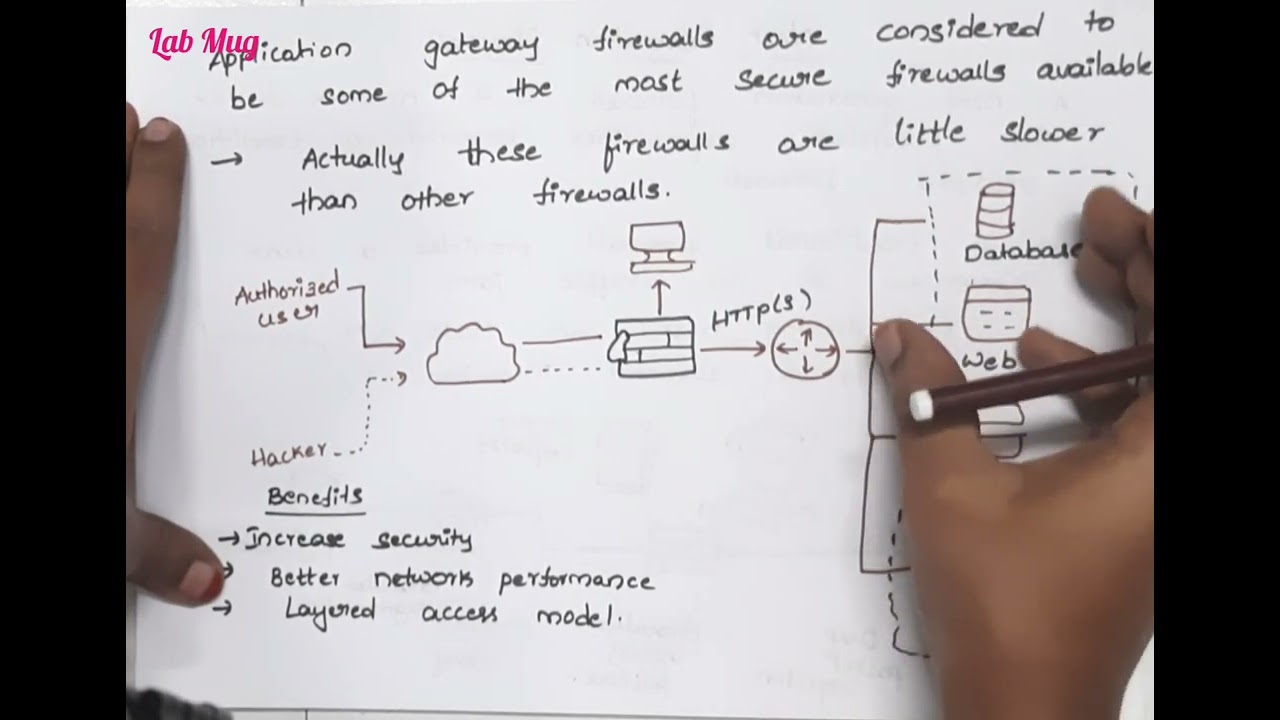 Lab Mug
Application gateway firewalls are considered to
be some of the most secure firewalls available
→ Actually these firewalls are little slower
than other firewalls.
Database
Authorized
user
HTTP(S)
Web
Hacker
Benefits
→ Increase security
→ Better network performance
→ Layered access model.